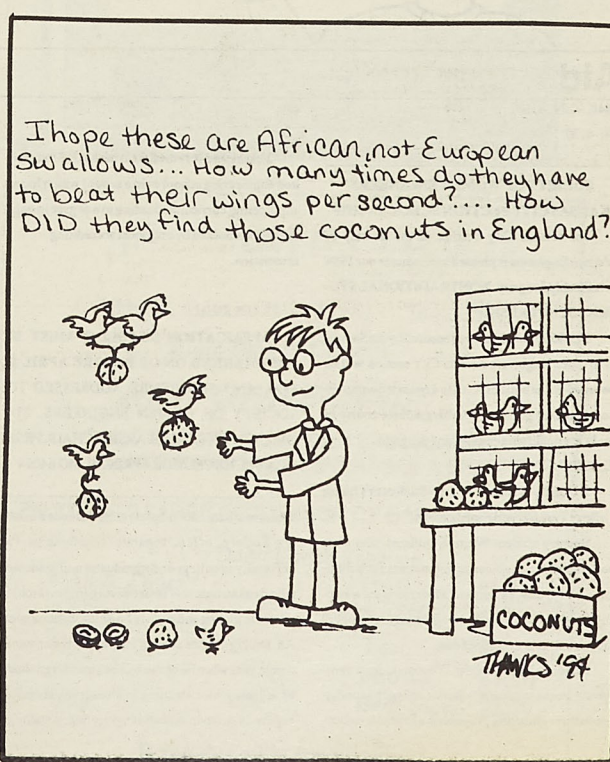 I hope these are African, not European
Swallows... How many times do they have
to beat their wings per second?.... How
DID they find those coconuts in England?
COCONUTS
THANKS '94